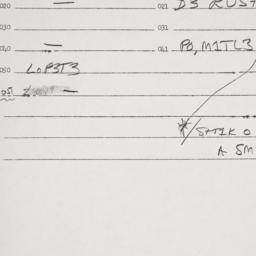 020 021 D3 RUST
030 031
040 041 PO, MITL3
050 LOP3T3
051
* SMIK O
A SM